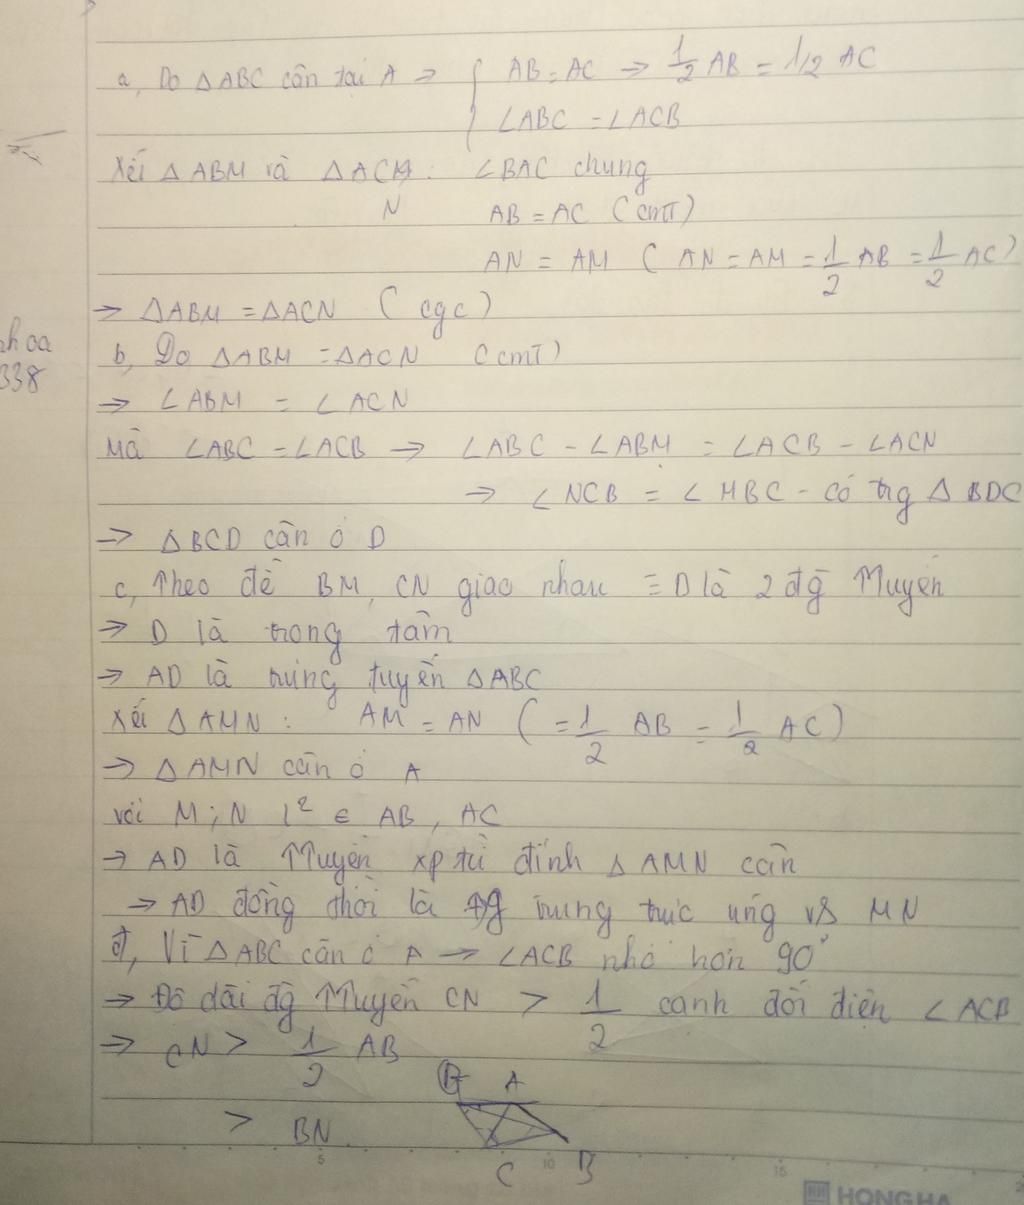 a, Do △ABC cân tại A ⇒ { AB = AC → 1/2 AB = 1/2 AC
∠ABC = ∠ACB
Xét △ABM và △ACN : ∠BAC chung
AB = AC (cmT)
AN = AM ( AN = AM = 1/2 AB = 1/2 AC)
⇒ △ABM = △ACN ( cgc )
b, Do △ABM = △ACN (cmT)
⇒ ∠ABM = ∠ACN
Mà ∠ABC = ∠ACB → ∠ABC - ∠ABM = ∠ACB - ∠ACN
⇒ ∠NCB = ∠MBC - có trg △BDC
→ △BCD cân ở D
c, Theo đề BM, CN giao nhau ≡ D là 2 đg Truyến
→ D là trọng tâm
→ AD là trung tuyến △ABC
Xét △AMN : AM = AN ( = 1/2 AB = 1/2 AC )
→ △AMN cân ở A
với M ; N l² ∈ AB , AC
→ AD là Truyến xp từ đỉnh △AMN cân
→ AD đồng thời là đg trung trực ứng vs MN
d, Vì △ABC cân ở A → ∠ACB nhỏ hơn 90°
→ Độ dài đg Truyến CN > 1/2 cạnh đối diện ∠ACB
⇒ CN > 1/2 AB
> BN
A
C B
hoa
338
5 10 15
HONG HA